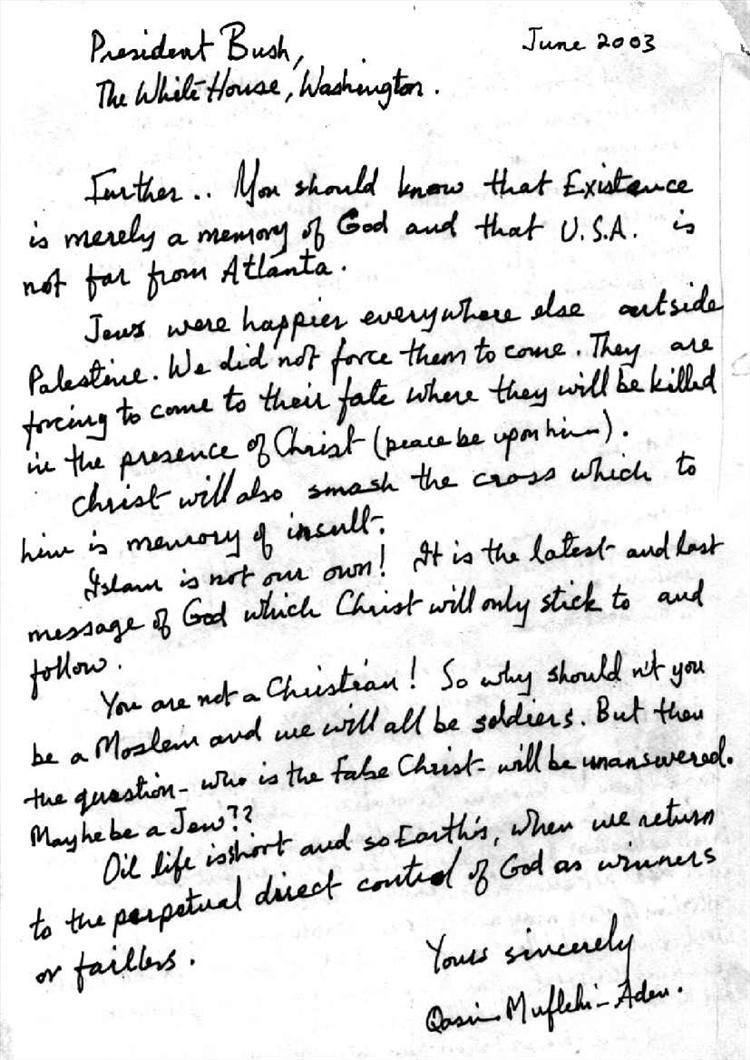 June 2003
President Bush,
The White House, Washington.
Further.. You should know that Existence
is merely a memory of God and that U.S.A. is
not far from Atlanta.
Jews were happier everywhere else outside
Palestine. We did not force them to come. They are
forcing to come to their fate where they will be killed
in the presence of Christ (peace be upon him).
Christ will also smash the cross which to
him is memory of insult.
Islam is not our own! It is the latest and last
message of God which Christ will only stick to and
follow.
You are not a Christian! So why should n't you
be a Moslem and we will all be soldiers. But then
the question - who is the false Christ - will be unanswered.
May he be a Jew??
Oil life is short and so Earth's, when we return
to the perpetual direct control of God as winners
or faillers.
Yours sincerely
Qasim Muflehi - Aden.